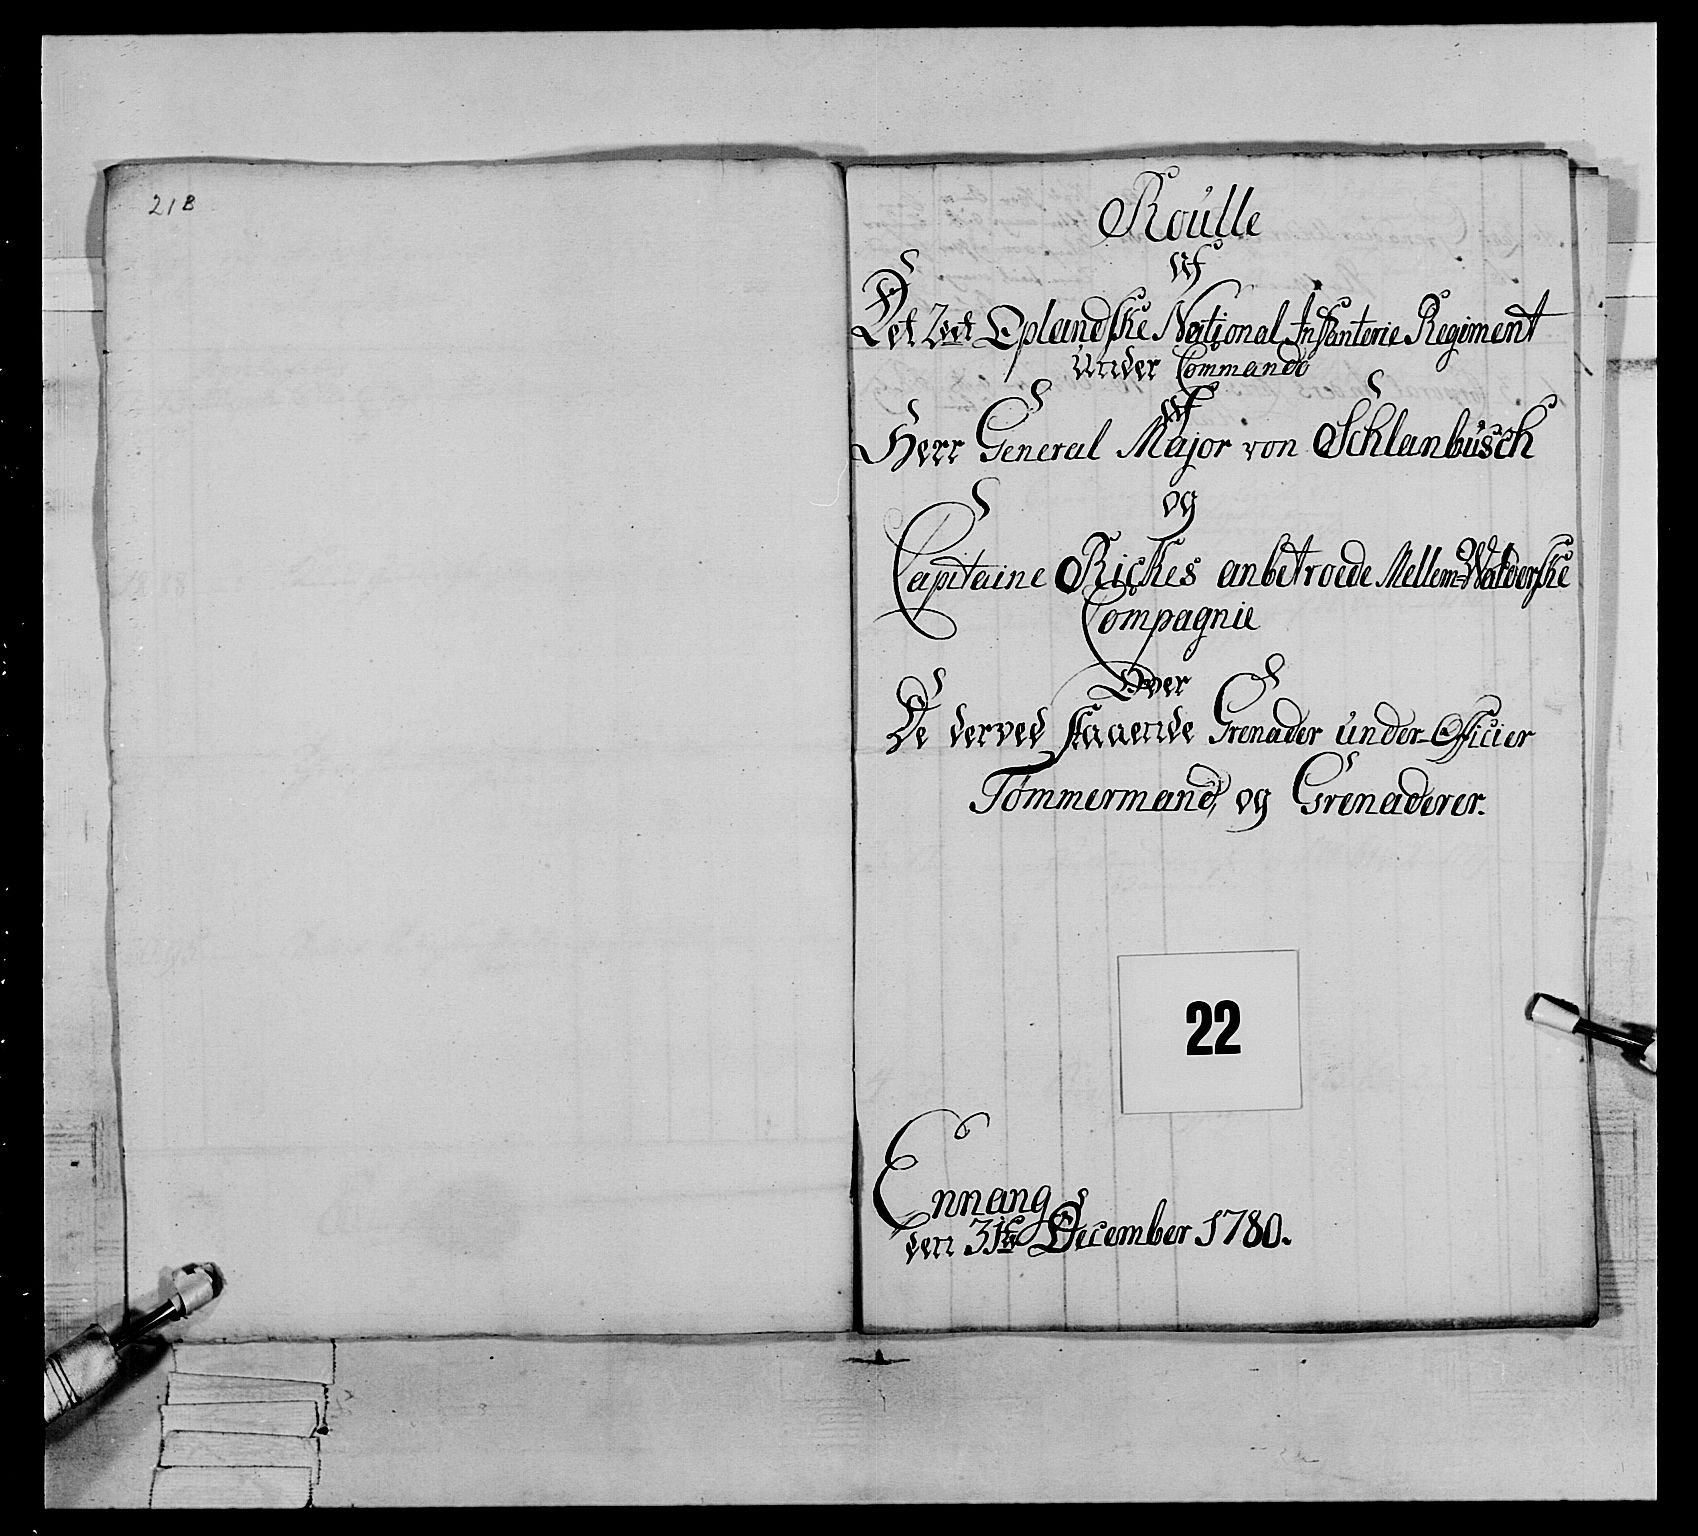 21B
Roulle
af
Det 2det Oplandske National Infanterie Regiment
under Commando
af
Herr General Major von Schlanbusch
og
Capitaine Rickes anbetroede Mellem-Walderske
Compagnie
Over
De derved staaende Grenader under-Officier
Tømmermand, og Grenaderer.
22
Ennang
den 31te December 1780.